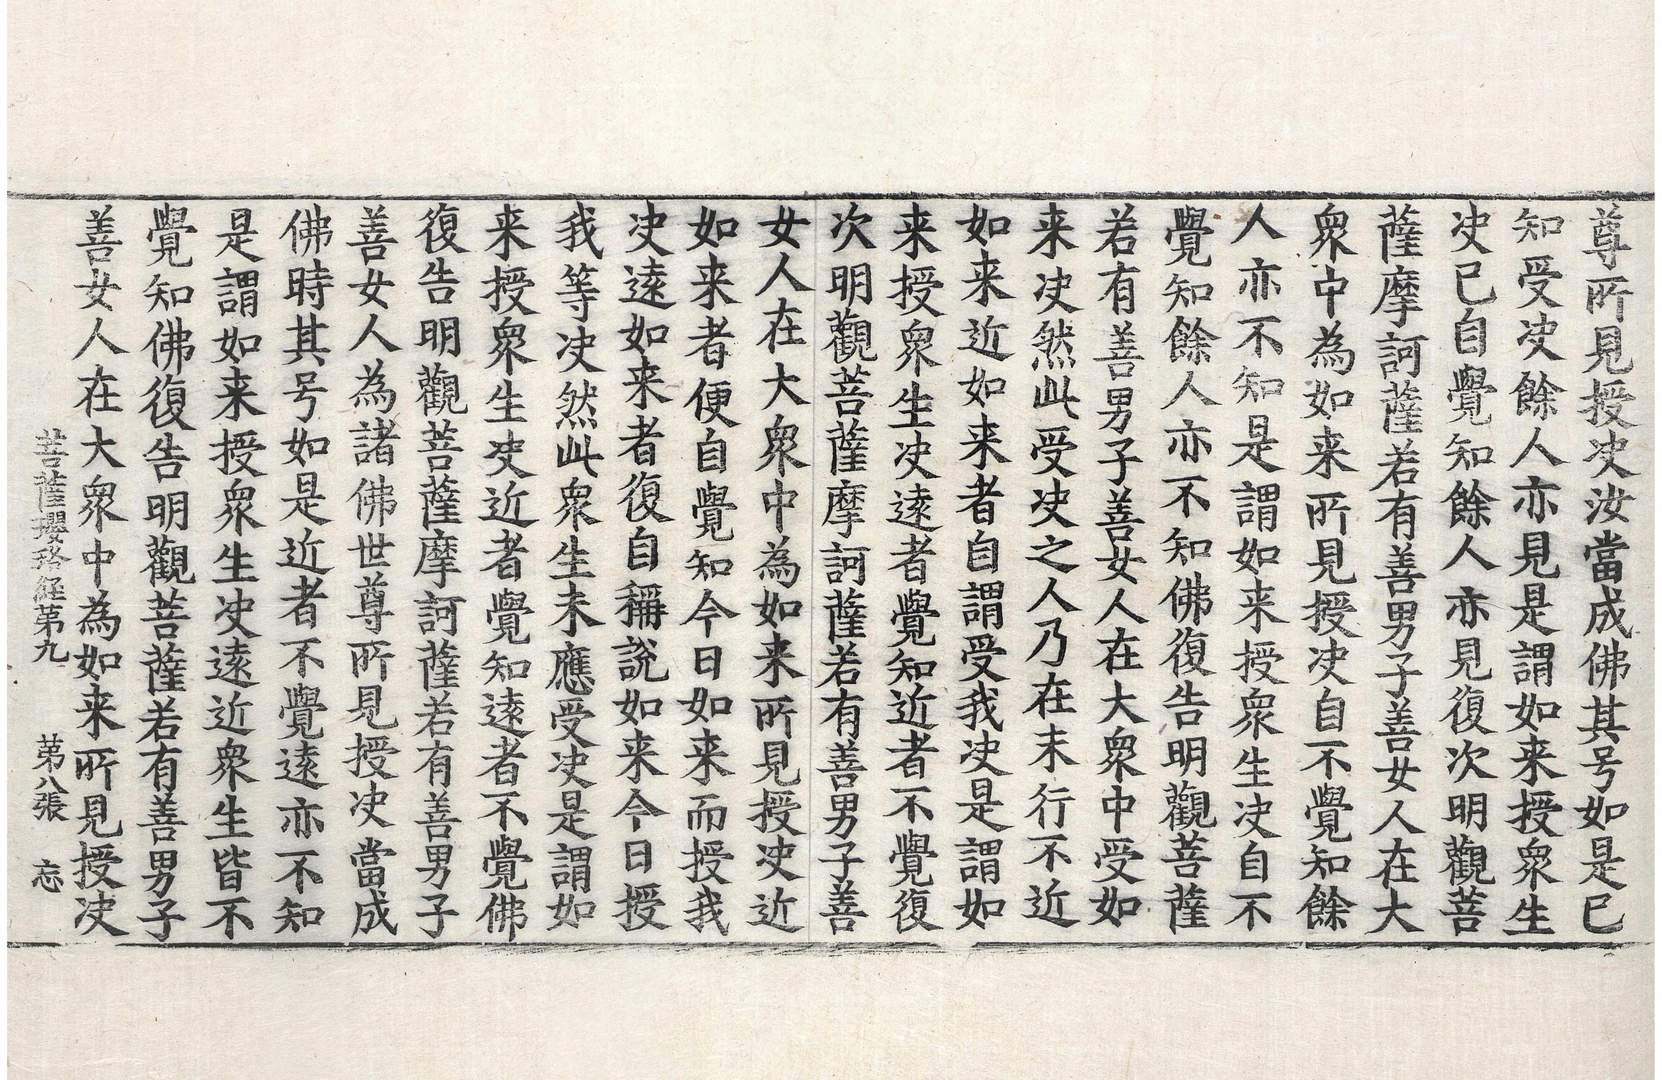 尊所見授决汝當成佛其号如是已
知受决餘人亦見是謂如来授衆生
决已自覺知餘人亦見復次明觀菩
薩摩訶薩若有善男子善女人在大
衆中為如来所見授决自不覺知餘
人亦不知是謂如来授衆生决自不
覺知餘人亦不知佛復告明觀菩薩
若有善男子善女人在大衆中受如
来决然此受决之人乃在末行不近
如来近如来者自謂受我决是謂如
来授衆生决遠者覺知近者不覺復
次明觀菩薩摩訶薩若有善男子善
女人在大衆中為如来所見授决近
如来者便自覺知今日如来而授我
决遠如来者復自稱說如来今日授
我等决然此衆生未應受决是謂如
来授衆生决近者覺知遠者不覺佛
復告明觀菩薩摩訶薩若有善男子
善女人為諸佛世尊所見授决當成
佛時其号如是近者不覺遠亦不知
是謂如来授衆生决遠近衆生皆不
覺知佛復告明觀菩薩若有善男子
善女人在大衆中為如来所見授决
菩薩瓔珞経第九 第八張 忘